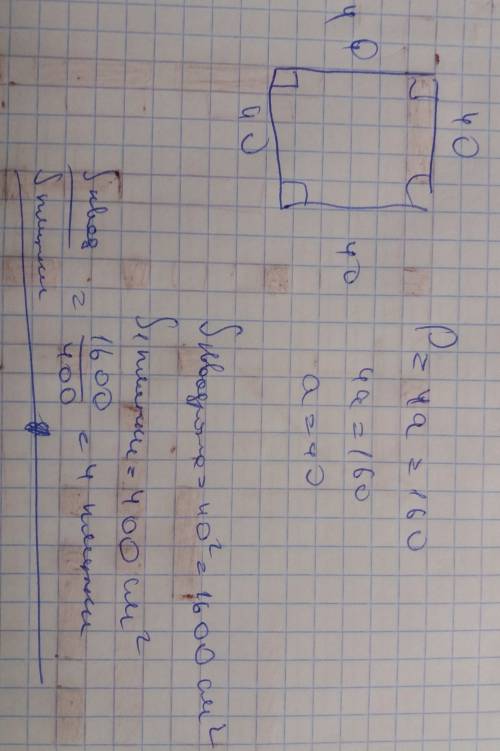 40
40
40
40
P = 4a = 160
4a = 160
a = 40
S квадрата = 40² = 1600 см²
S 1 плитки = 400 см²
S квад / S плитки = 1600 / 400 = 4 плитки